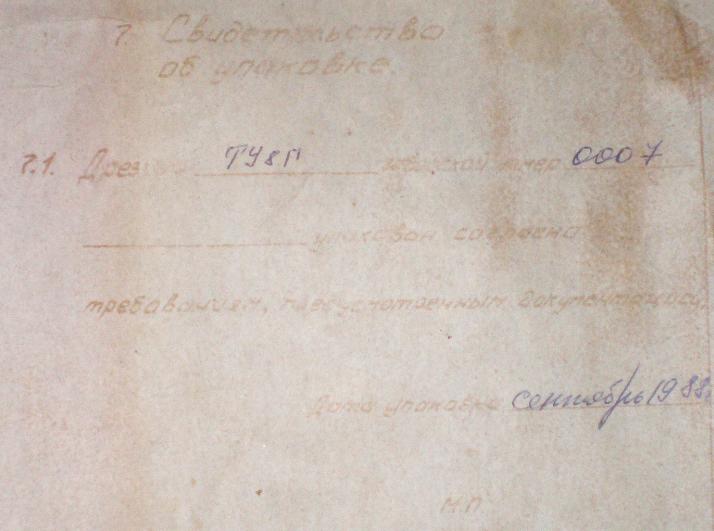 7. Свидетельство
об упаковке.
7.1. Дрезина ТУ8П заводской номер 0007
упакован согласно
требованиям, предусмотренным документацией.
Дата упаковки сентябрь 1988г.
М.П.